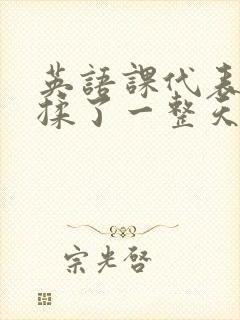 英語課代表
揉了一整天
宗光啓